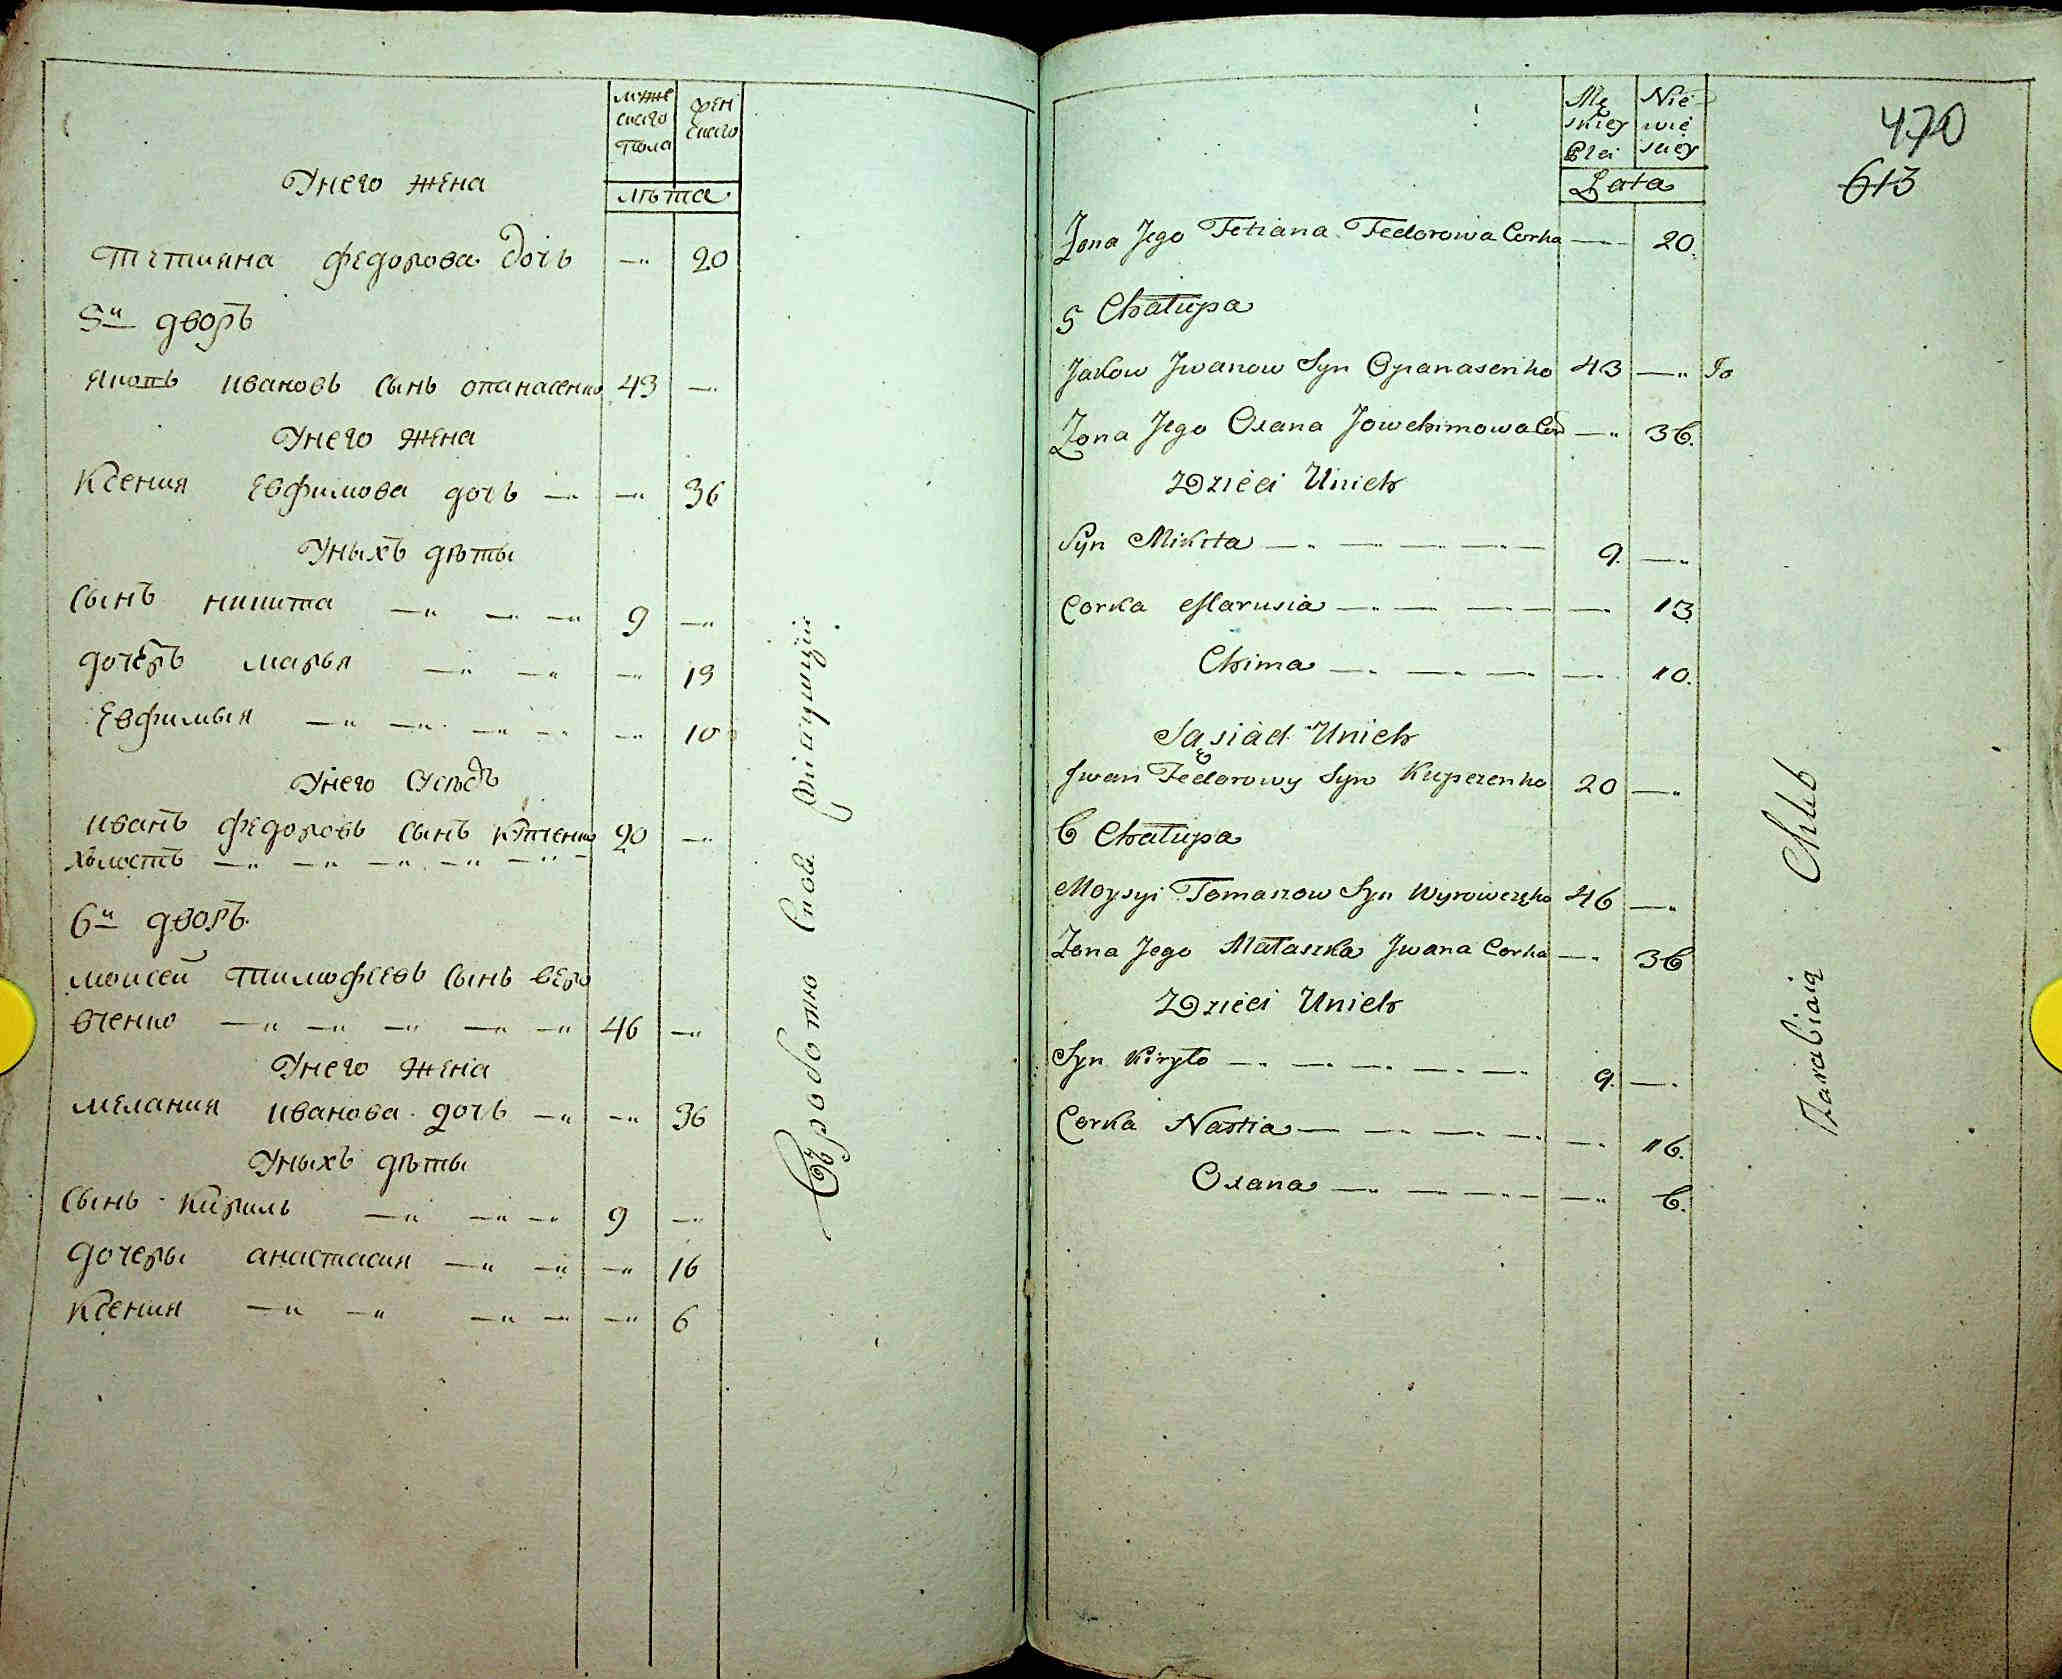 муже
скаго
пола
жен
скаго
лѣта
Унего жена
тетияна федорова дочь —„ 20
5й дворъ
яковъ ивановъ сынъ опанасенко 43 —„
Унего жена
Ксения Евфимова дочь —„ —„ 36
Уныхъ дѣты
Сынъ никита —„ —„ —„ 9 —„
дочерь марья —„ —„ —„ 13
Евфимыя —„ —„ —„ —„ —„ 10
Унего Сусѣдъ
иванъ федоровъ сынъ 20 —„
холостъ —„ —„ —„ —„ —„
6й дворъ
моисей тимофеевъ сынъ веро
вченко —„ —„ —„ —„ —„ 46 —„
Унего жена
мелания иванова дочь —„ —„ 36
Уныхъ дѣты
Сынъ Кирилъ —„ —„ —„ 9 —„
дочеры анастасия —„ —„ —„ 16
Ксения —„ —„ —„ —„ —„ 6
Mę
skiey
Płci
Nie
wie
sciey
Lata
470
613
Zona Jego Tetiana Fedorowa Corka —„ 20.
5 Chałupa
Jakow Jwanow Syn Opanasenko 43 —„ To
Zona Jego Oxana Jowchimowa Cor —„ 36.
Dzieci Unich
Syn Mikita —„ — — —„ — 9. —„
Corka Marusia —„ — — — — 13.
Chima —„ —„ — — 10.
Sąsiad Unich
Jwan Fedorowy Syn Kupczenko 20 —„
6 Chałupa
Moysyi Tomaszow Syn Wyrowczęko 46 —„
Zona Jego Małaszka Jwana Corka —„ 36
Dzieci Unich
Syn Kiryło —„ —„ —„ —„ —„ 9. —„
Corka Nastia — —„ —„ —„ —„ 16.
Oxana —„ — —„ — —„ 6.
Zarabiaią Chleb